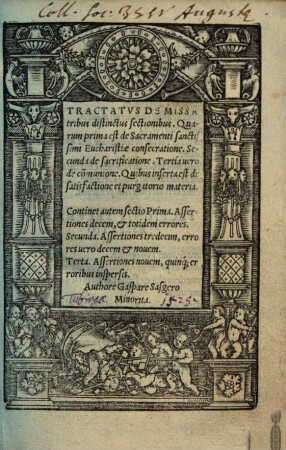 Coll. Soc: Auguste
TRACTATVS DE MISSA
tribus distinctus sectionibus. Qua
rum prima est de Sacramenti sancti
simi Eucharistiæ consecratione. Se
cunda de sacrificatione. Tertia uero
de cōmunione. Quibus inserta est d
satisfactione et purgatorio materia.
Continet autem sectio Prima. Asser
tiones decem, & totidem errores.
Secunda. Assertiones tredecim, erro
res uero decem & nouem.
Tertia. Assertiones nouem, quinq; er
roribus inspersis.
Authore Gaspare Sasgero
Minorita. 1525.